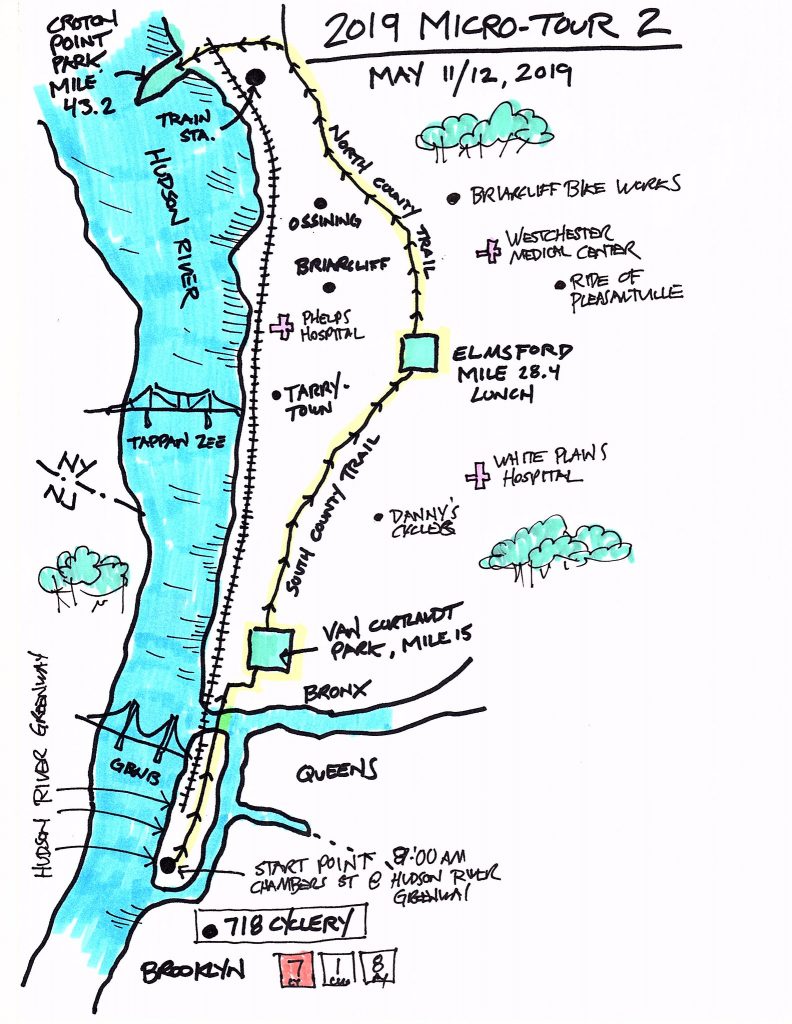 2019 MICRO-TOUR 2
MAY 11/12, 2019
CROTON
POINT
PARK
MILE
43.2
TRAIN
STA.
HUDSON RIVER
NORTH COUNTY TRAIL
OSSINING
BRIARCLIFF
BRIARCLIFF BIKE WORKS
WESTCHESTER
MEDICAL CENTER
RIDE OF
PLEASANTVILLE
PHELPS
HOSPITAL
ELMSFORD
MILE 28.4
LUNCH
TARRY-
TOWN
TAPPAN ZEE
NY
NJ
WHITE PLAINS
HOSPITAL
DANNY'S
CYCLES
SOUTH COUNTY TRAIL
VAN CORTLANDT
PARK, MILE 15
BRONX
HUDSON RIVER GREENWAY
GWB
QUEENS
START POINT 8:00 AM
CHAMBERS ST @ HUDSON RIVER
GREENWAY
718 CYCLERY
BROOKLYN
7 1 8
CY CLE RY